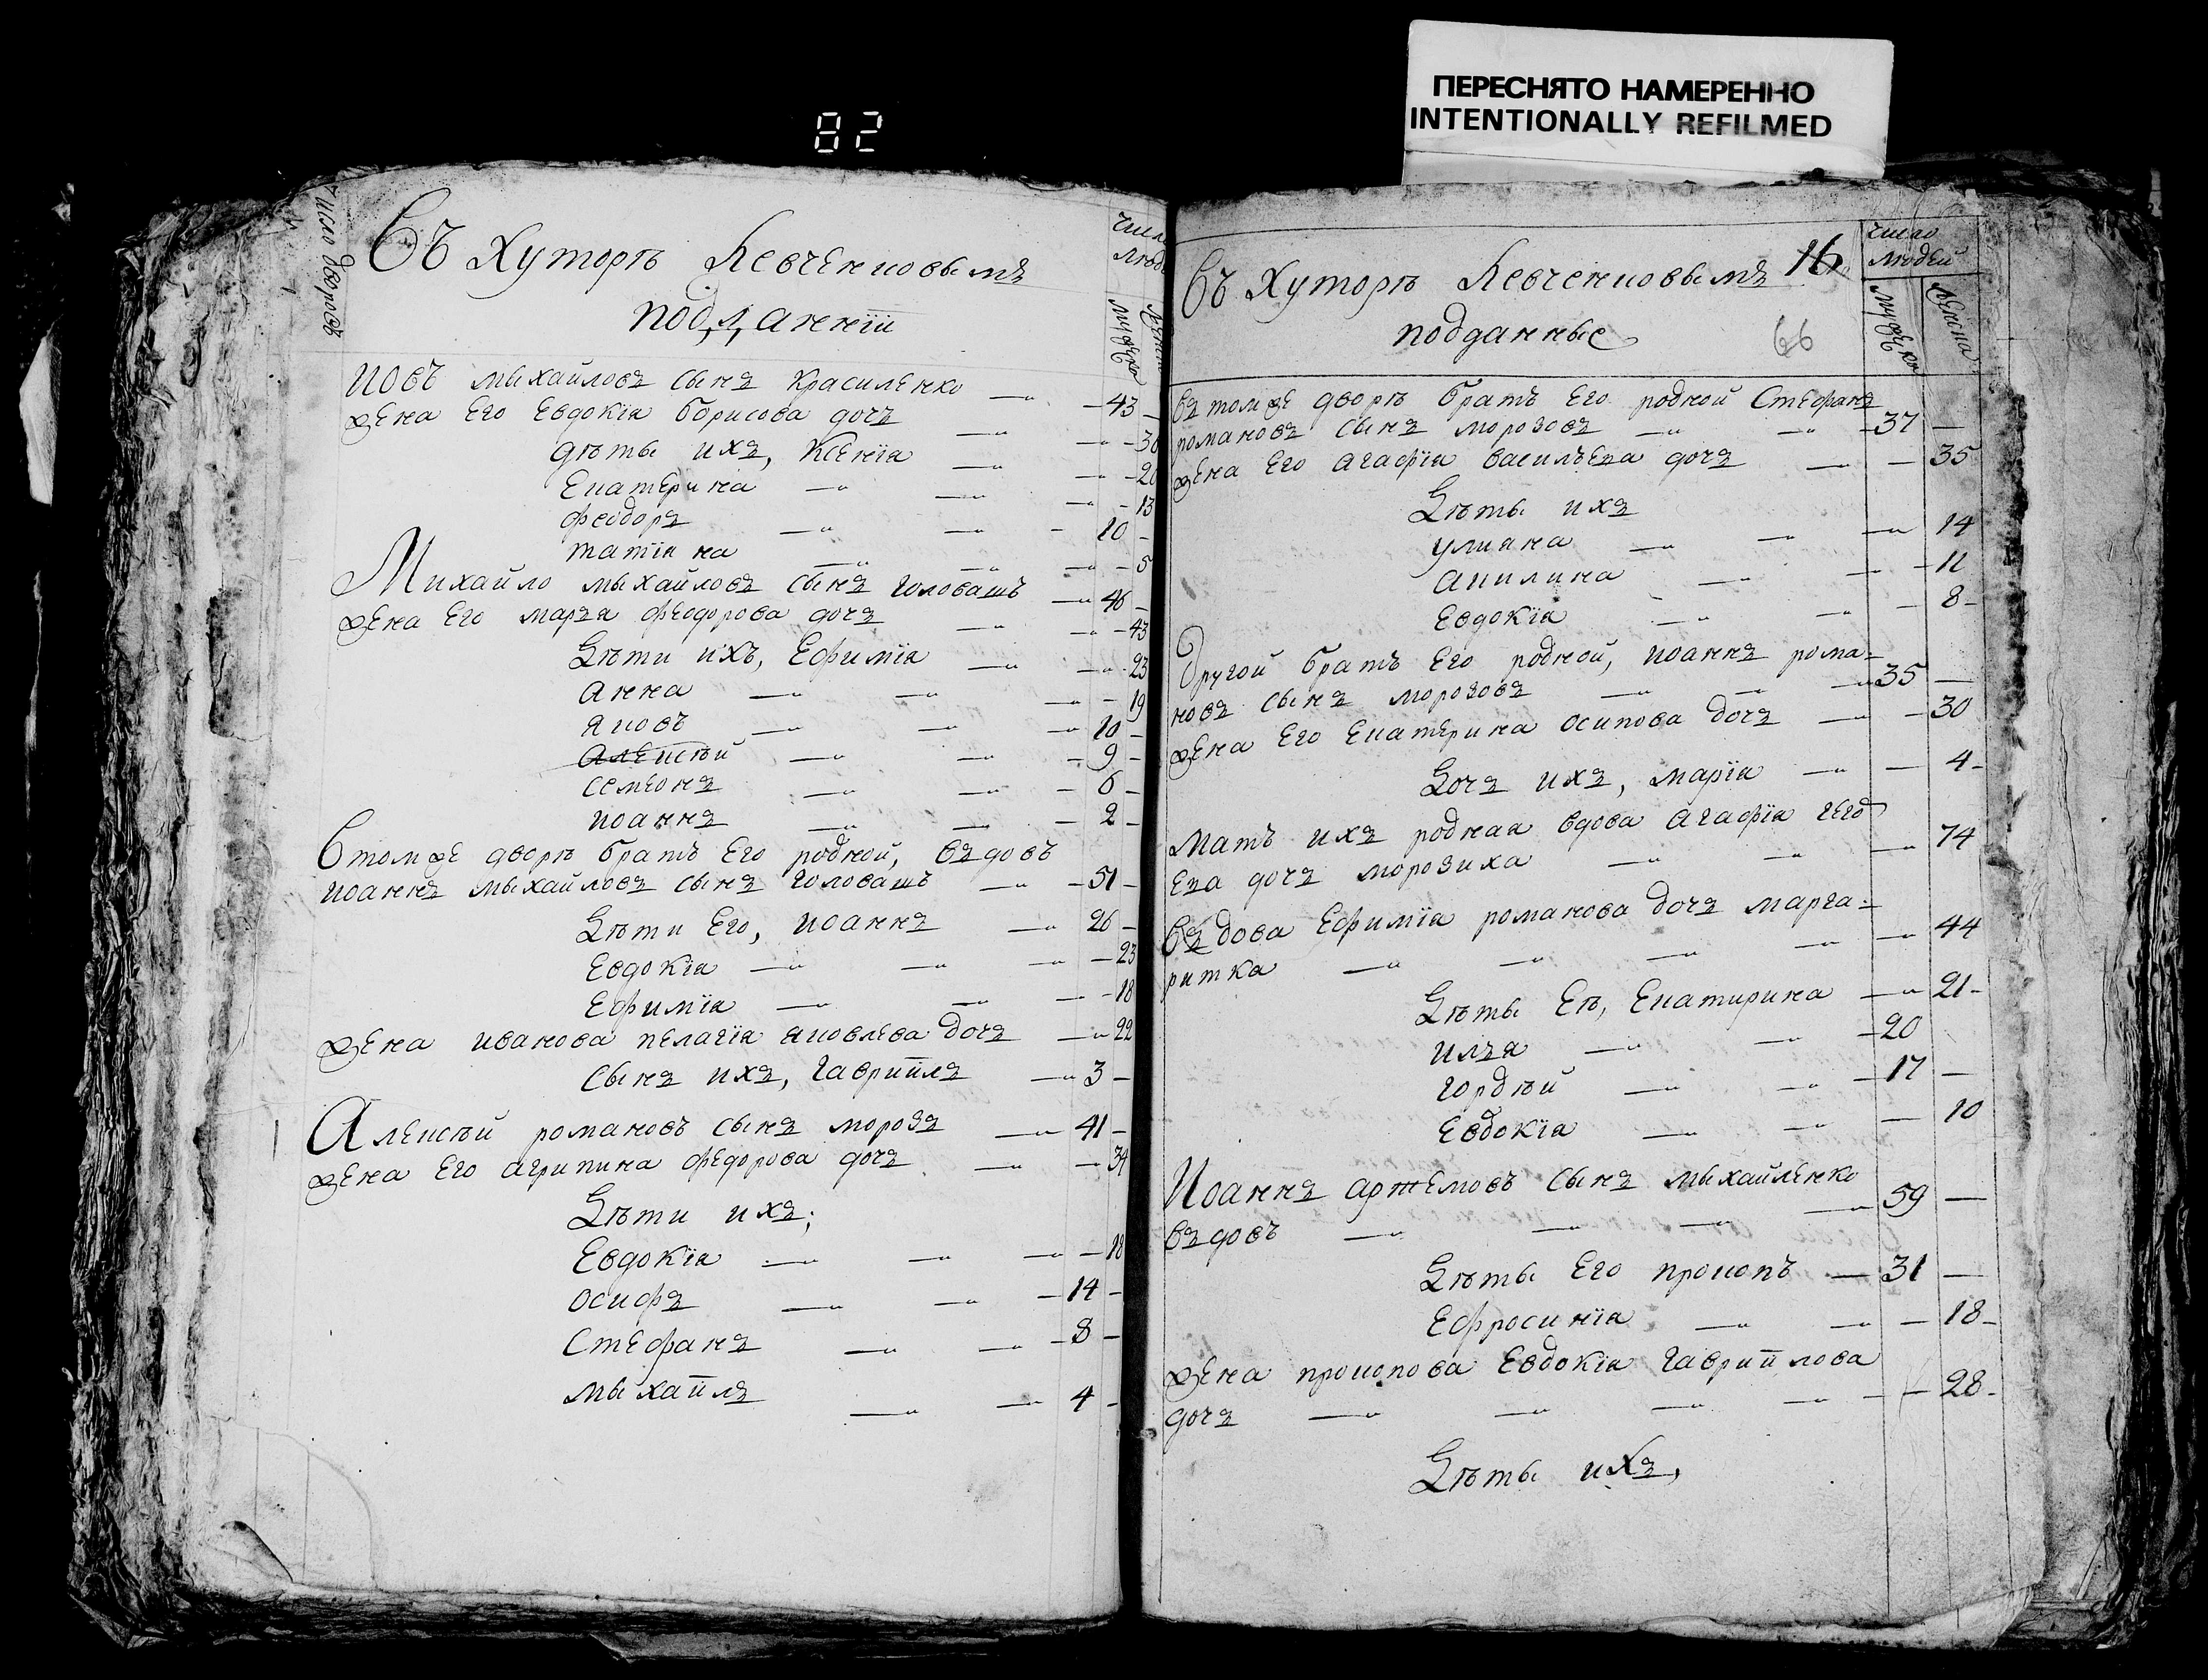 82
ПЕРЕСНЯТО НАМЕРЕННО
INTENTIONALLY REFILMED
Число дворовъ
Въ Хуторѣ Левченковымъ
подданнїи
Число
Людей
мужеска
Иовъ мыхайловъ сынъ Красиленко 43
жена Его Евдокїа борисова дочъ
дѣты ихъ, Ксенїа 20
Екатерина 13
феодоръ 10
татїана 5
Михайло мыхайловъ сынъ головашъ 46
жена Его маръя феодорова дочъ 43
Дѣти ихъ, Ефимїа 23
анна 19
яковъ 10
Алексѣй 9
семионъ 6
иоаннъ 2
Втомже дворѣ братъ Его родной, въдовъ
иоаннъ мыхайловъ сынъ головашъ 51
Дѣти Его, иоаннъ 26
Евдокїа 23
Ефимїа 18
Жена иванова пелагїа яковлева дочъ 22
сынъ ихъ, гавриїлъ 3
Алексѣй романовъ сынъ морозъ 41
жена Его агрипина федорова дочъ 34
Дѣти ихъ;
Евдокїа 18
осифъ 14
стефанъ 8
мыхаїлъ 4
Въ Хуторѣ Левченковымъ 16
подданные
66
число
людей
мужеска
женска
Въ томже дворѣ братъ Его родной Стефанъ
романовъ сынъ морозовъ 37
жена Его агафїа васильева дочъ 35
Дѣты ихъ
улияна 14
акилина 11
Евдокїа 8
Другой братъ Его родной, иоаннъ рома-
новъ сынъ морозовъ 35
жена Его Екатерина осипова дочъ 30
Дочъ ихъ, марїа 4
Матъ ихъ родная вдова агафїа
Ева дочъ морозиха 74
Въдова Ефимїа романова дочъ марга-
ритка 44
Дѣты Еѣ, Екатирина 21
илья 20
гордѣй 17
Евдокїа 10
Иоаннъ артемовъ сынъ мыхайленко
въдовъ 59
Дѣты Его прокопъ 31
Ефросинїа 18
жена прокопова Евдокїа гавриїлова
дочъ 28
Дѣты ихъ,